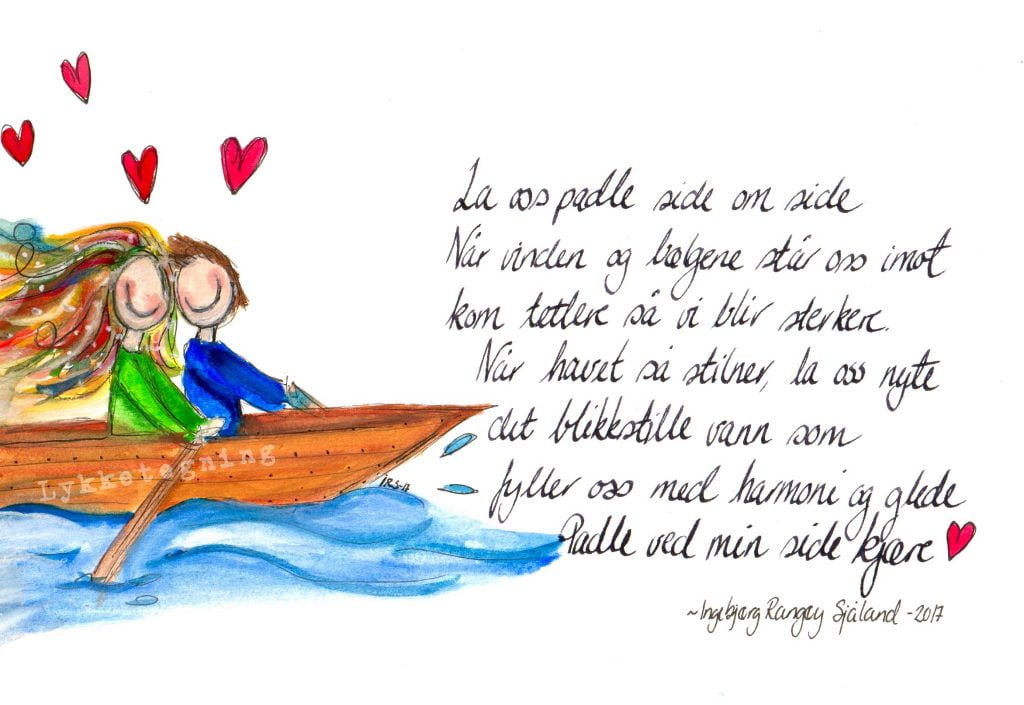 La oss padle side om side
Når vinden og bølgene står oss imot
kom tettere så vi blir sterkere.
Når havet så stilner, la oss nyte
det blikkstille vann som
fyller oss med harmoni og glede
Padle ved min side kjære
~Ingebjørg Rangøy Själand -2017
Lykketegning
IRS-17